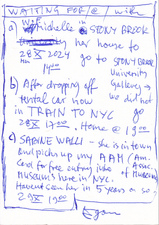 WAITING FOR/@/ with
a) W. Michelle in STONY BROOK
her house to
28 X 2024 go to STONY BROOK
14 00 University
b) After dropping off Gallery →
rental car now we did not
in TRAIN TO NYC go
28 X 17 00. Home @ 19 00
c) SABINE WALLI – she is in town
and pick up my AAM (Am.
Card for free entry into Ass.
museums here in NYC. of Museums)
Haven't seen her in 5 years or so.
29 X 19 00